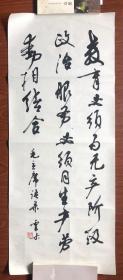 教育必须为无产阶级
政治服务必须同生产劳
動相结合
毛主席语录